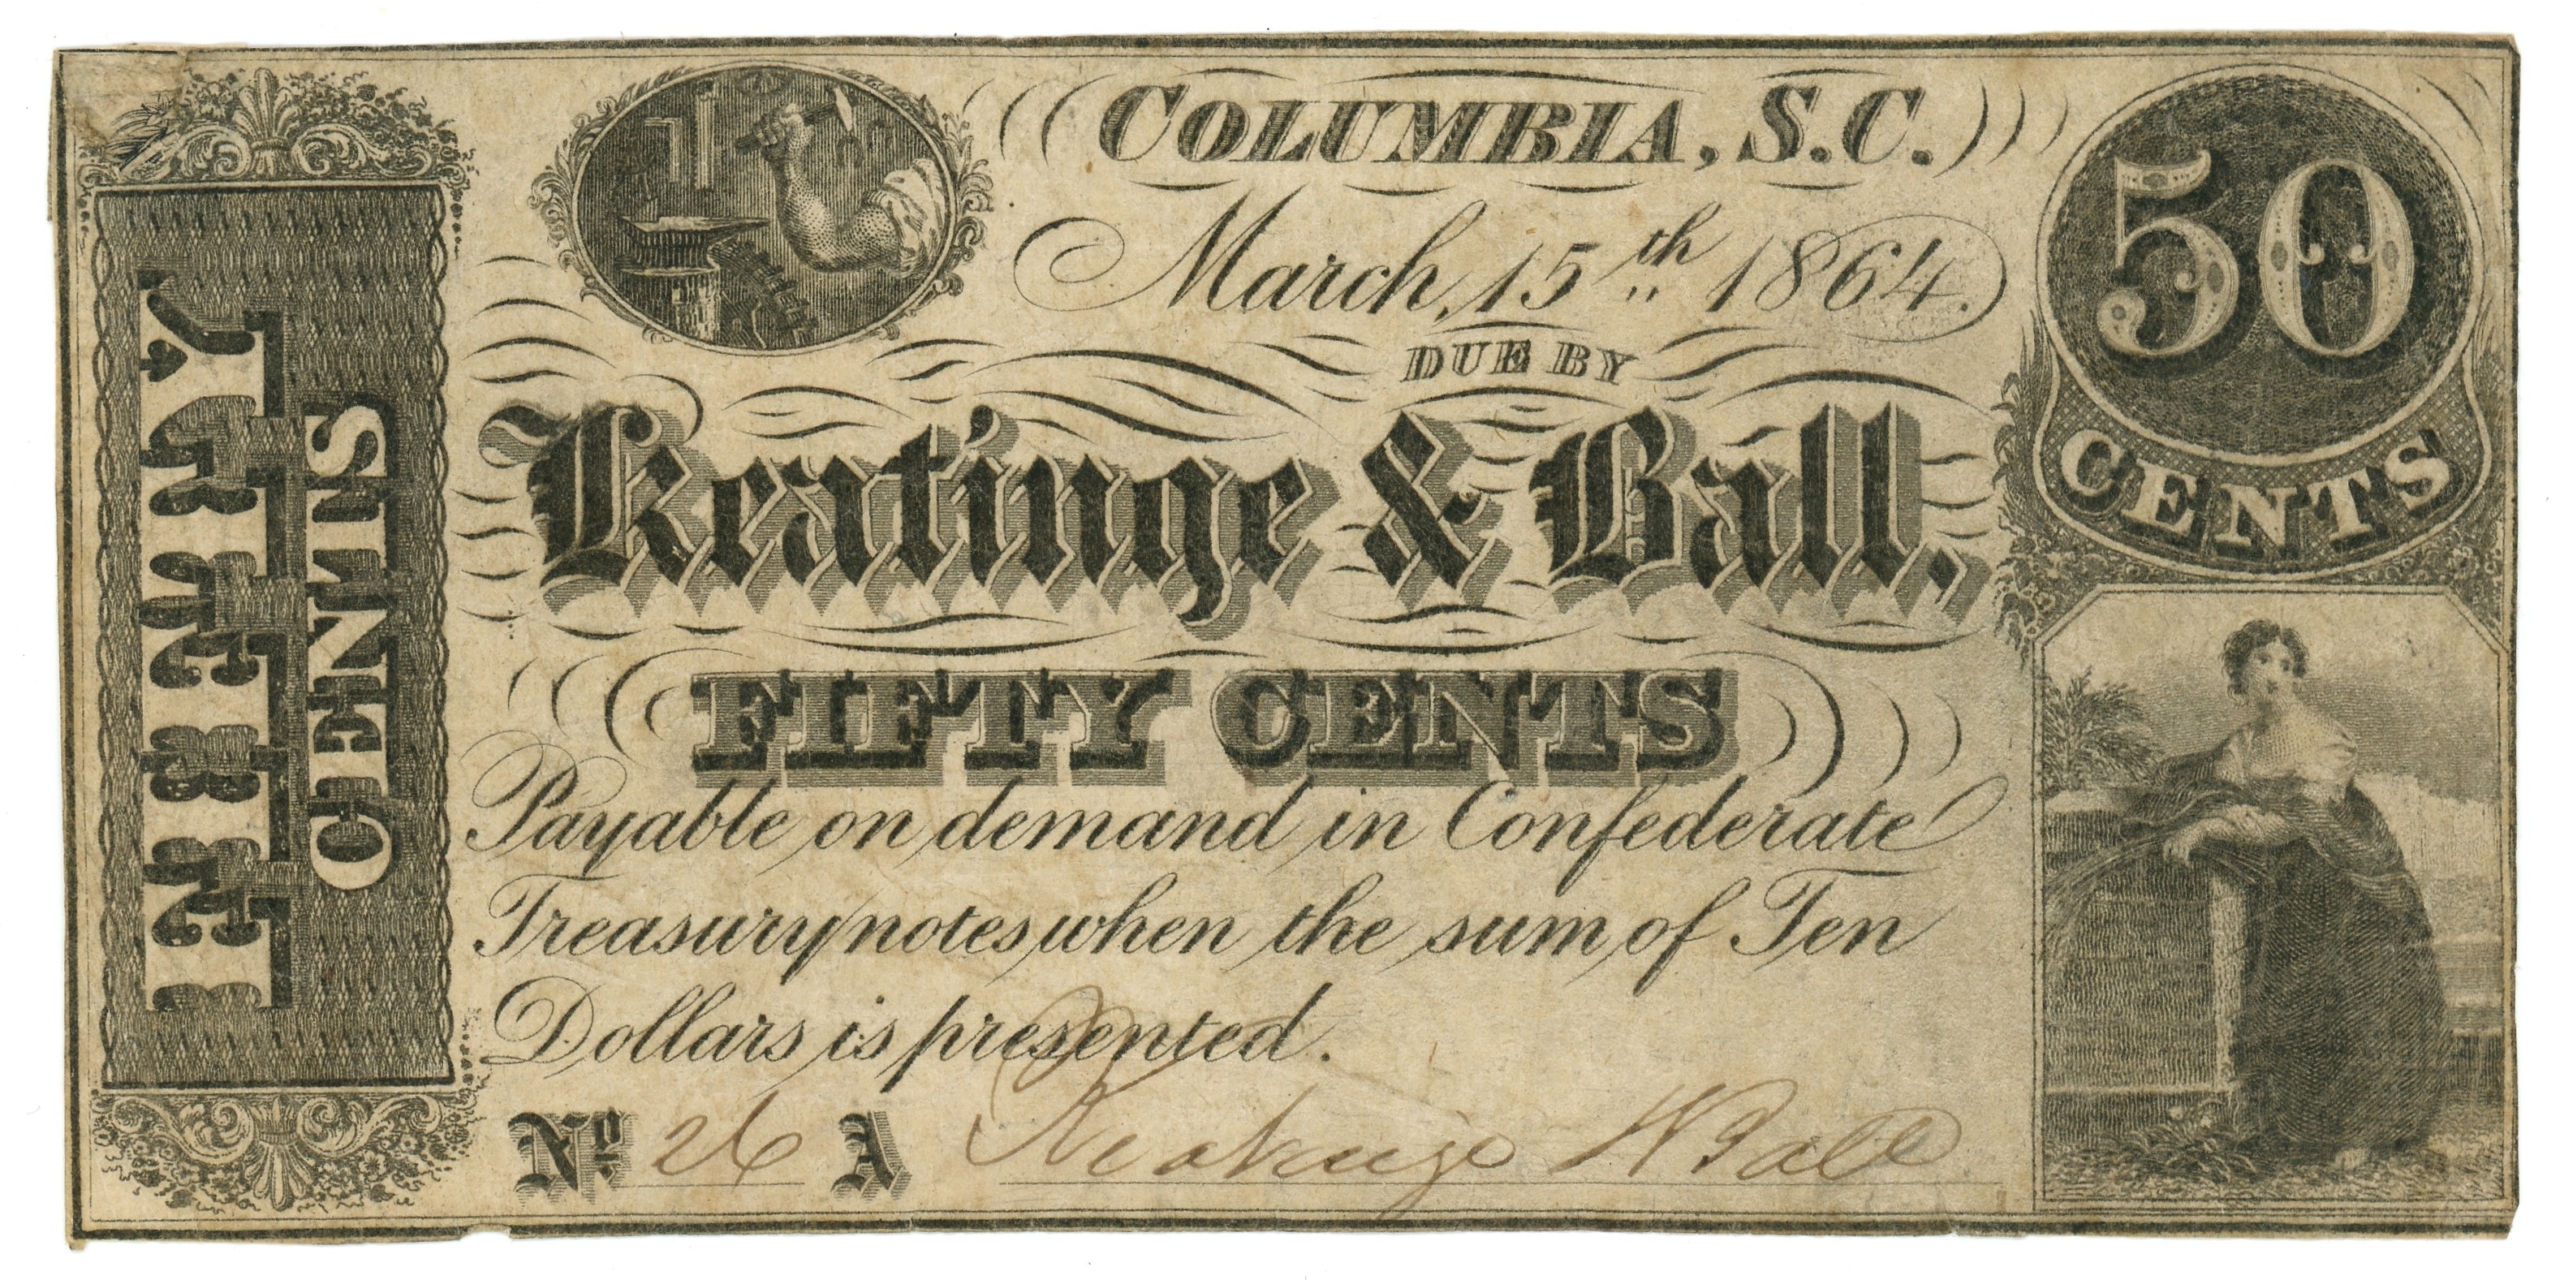 FIFTY
CENTS
COLUMBIA, S.C.
March, 15th 1864.
DUE BY
Keatinge & Ball,
FIFTY CENTS
Payable on demand in Confederate
Treasury notes, when the sum, of Ten
Dollars is presented.
No. 26 A Keatinge & Ball
50
CENTS